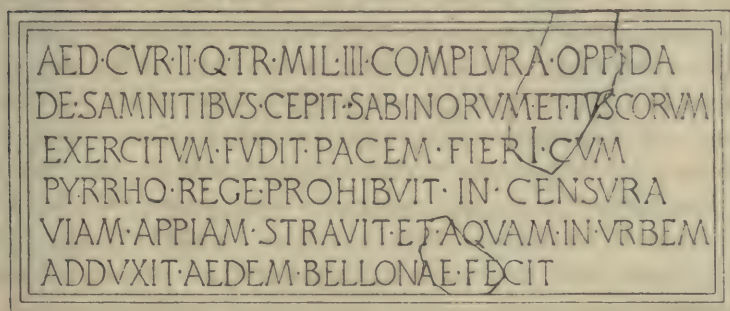 AED·CVR·II·Q·TR·MIL·III·COMPLVRA·OPPIDA
DE·SAMNITIBVS·CEPIT·SABINORVM·ET·TVSCORVM
EXERCITVM·FVDIT·PACEM·FIERI·CVM
PYRRHO·REGE·PROHIBVIT·IN·CENSVRA
VIAM·APPIAM·STRAVIT·ET·AQVAM·IN·VRBEM
ADDVXIT·AEDEM·BELLONAE·FECIT